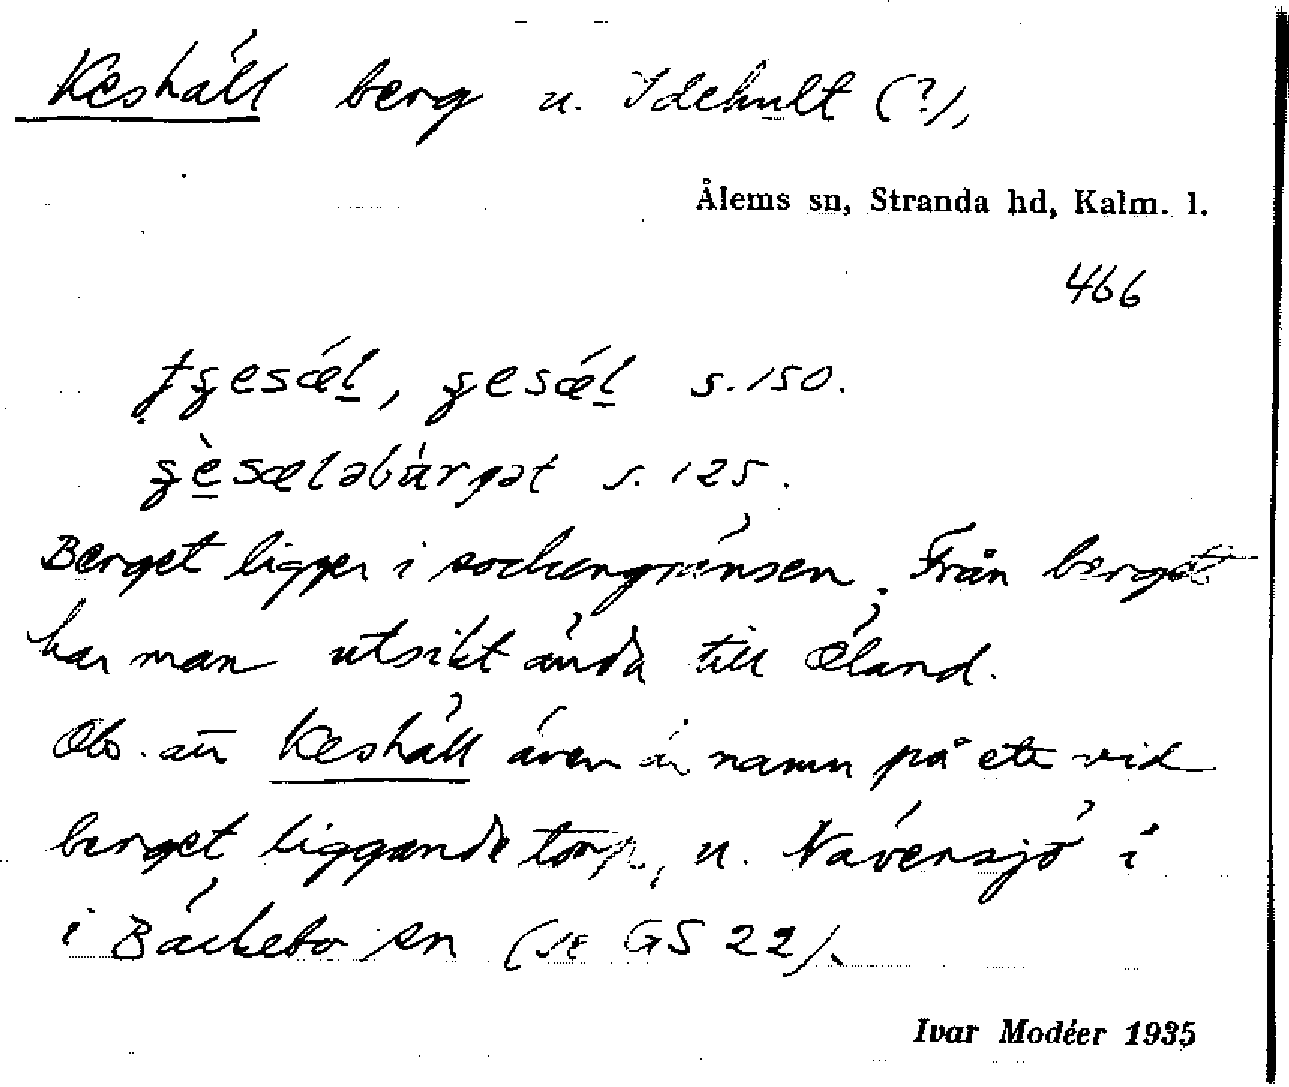 Keshäll berg u. Idehult (?),
Ålems sn, Stranda hd, Kalm. l.
466
s. 150.
s. 125.
Berget ligger i sockengränsen. Från berget
har man utsikt ända till Öland.
Obs. att Keshäll även är namn på ett vid
berget liggande torp, u. Näversjö i
i Bäckebo sn (se GS 22).
Ivar Modéer 1935